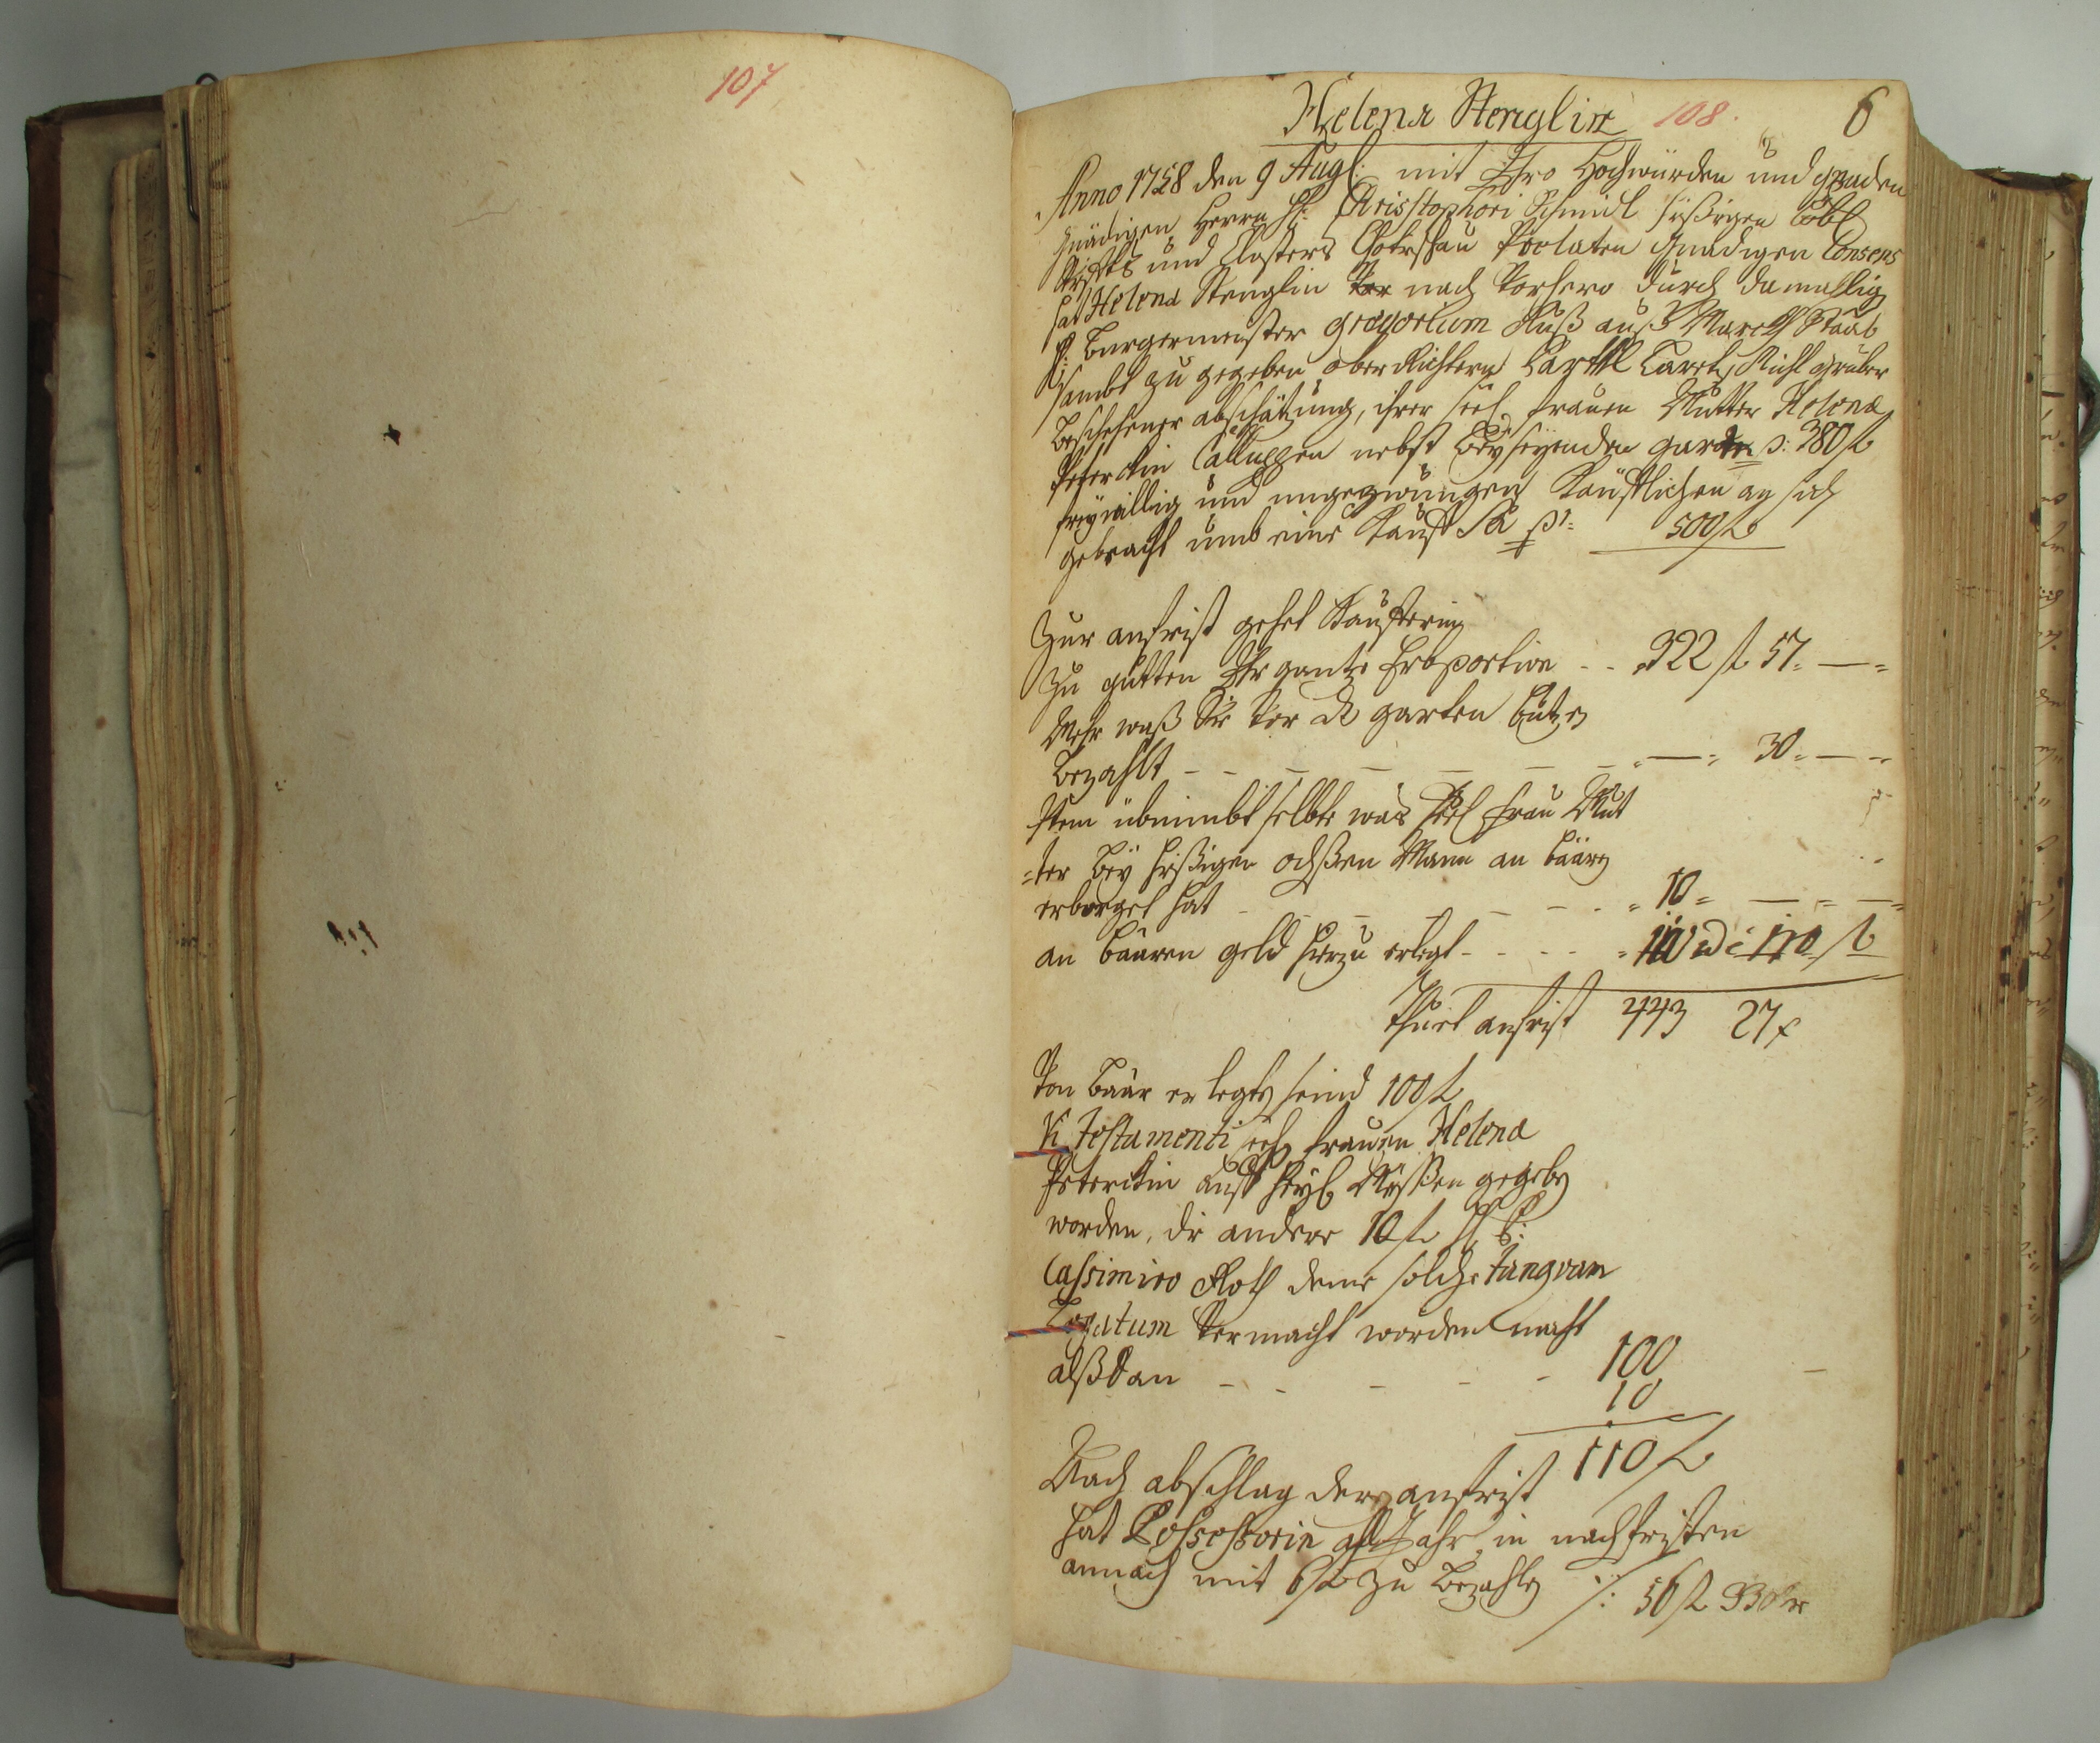 107
Helena Stenglin 108. 6
Anno 1758 den 9 Aug: mit Ihro Hochwürden und gnaden
gnädigen Herrn H: Christophori Schmidl hißigen Löbl
Stifts und Closters Choteschau Prelaten gnädigen Consens
hat Helena Stenglin nach Vorhero durch damahlig
H: Burgermeister gregorium Fuß auß Marckt Staab
sambt zu gegeben aber Richtern Carthl
beschehener abschätzung, ihrer seel frauen Mutter Helena
Peterckin Calluppen nebst beyseyenden garten p: 380 fl
freywillig und ungezwungen Kaufflichen an sich
gebracht umb eine Kauff Sa pr: 500 fl
Zur anfrist gehet Kaufferin
zu gutten Ihr gantze Erbportion - - 322 fl 57. —
Mehr waß Sie vor garten butzen
bezahlt - - - - - - - — 30. —
Item übnimbt selbte was seel frau Mut
=ter bey hißigen Mann an baaren
erborget hat - - - - - - 10 = — = —
an baaren geld hierzu erlegt - - - - 110 id e 110 fl
thuet anfrist 443 27 x
Von baar erlegten seind 100 fl
Vi Testamenti seel frauen Helena
Peterckin auff heyl Messen gegeben
worden, die andere 10 fl H P:
Cassimiro Roth deme solche tanquam
Legatum Vermacht worden macht
alßdan - - - - - 100 —
10
110 fl
Nach abschlag der anfrist
hat Possessorin all Jahr in nachfristen
annach mit 6 fl zu bezahlen /: 56 fl 33 xr